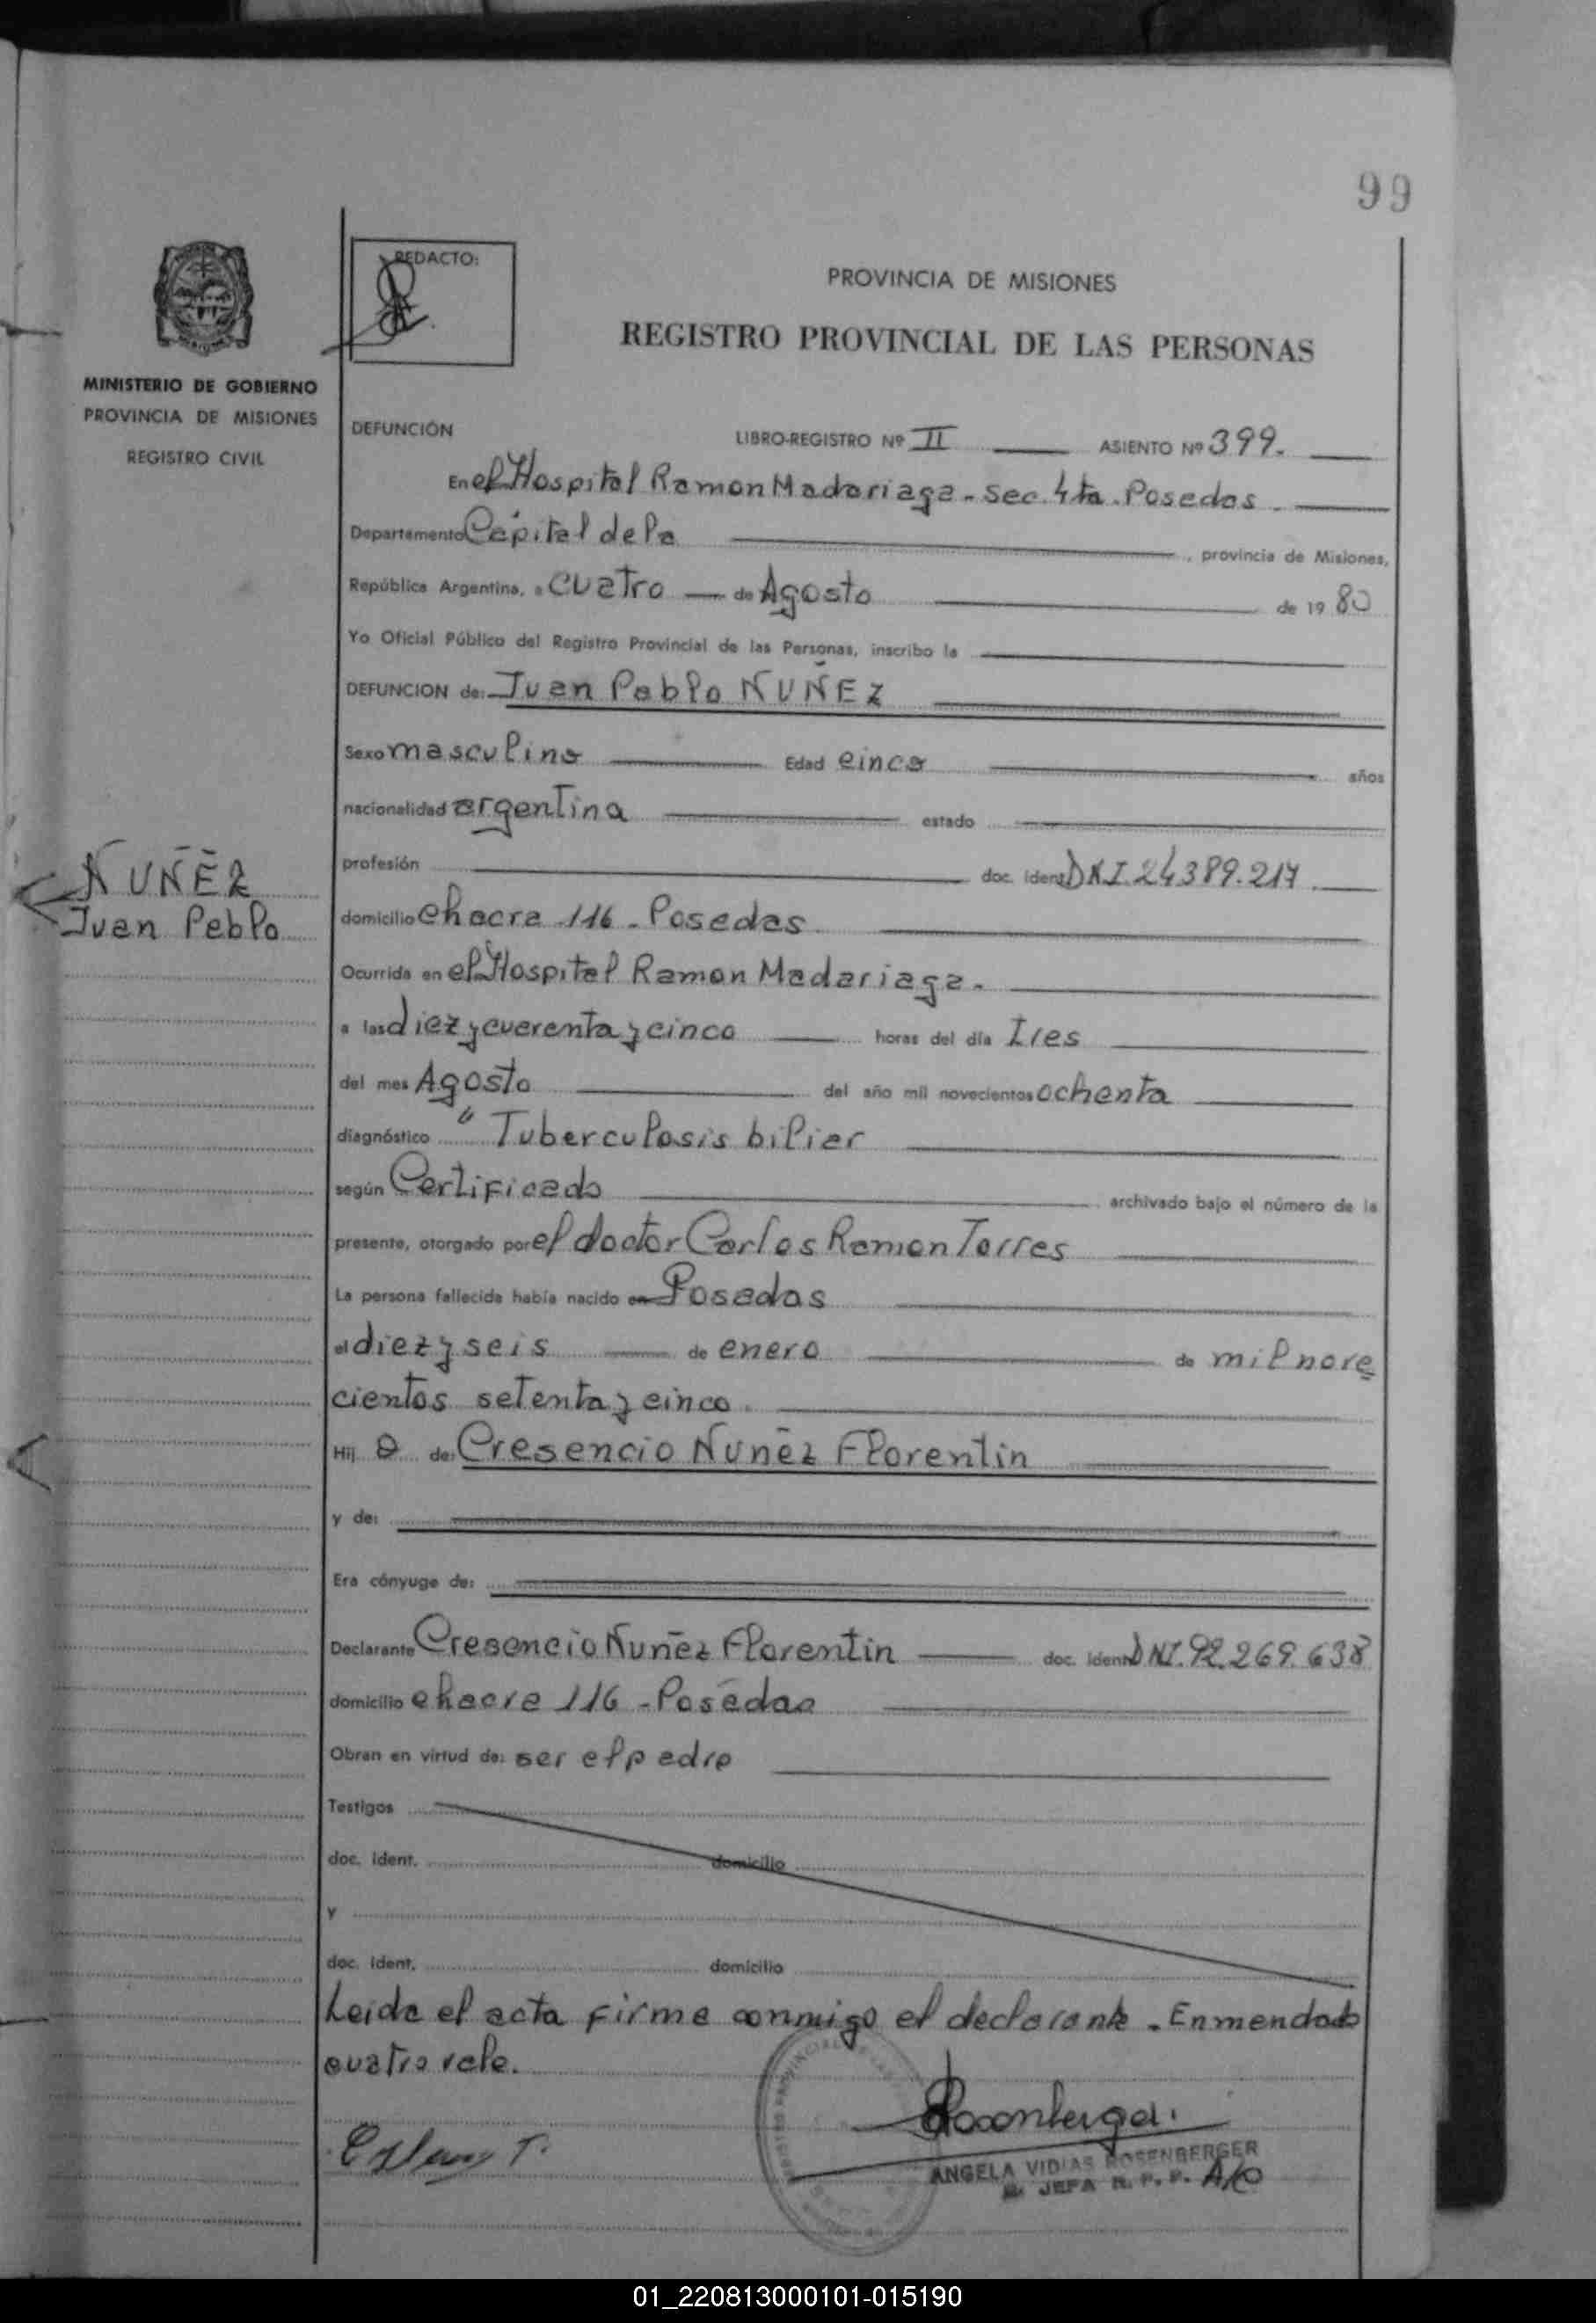 99
REDACTO:
MINISTERIO DE GOBIERNO
PROVINCIA DE MISIONES
REGISTRO CIVIL
PROVINCIA DE MISIONES
REGISTRO PROVINCIAL DE LAS PERSONAS
DEFUNCIÓN LIBRO-REGISTRO Nº II ASIENTO Nº 399.
En el Hospital Ramon Madariaga - sec. 4ta. Posadas
Departamento Capital de la , provincia de Misiones,
República Argentina, a cuatro de Agosto de 19 80
Yo Oficial Público del Registro Provincial de las Personas, inscribo la
DEFUNCION de: Juan Pablo NUÑEZ
Sexo masculino Edad cinco años
nacionalidad argentina estado
profesión doc. ident. DNI. 24389.217
NUÑEZ
Juan Pablo
domicilio chacra 116 - Posadas
Ocurrida en el Hospital Ramon Madariaga.
a las diez y cuarenta y cinco horas del día Tres
del mes Agosto del año mil novecientos ochenta
diagnóstico " Tuberculosis biliar
según Certificado archivado bajo el número de la
presente, otorgado por el doctor Carlos Ramon Torres
La persona fallecida había nacido en Posadas
el diez y seis de enero de mil nove
cientos setenta y cinco.
Hij o de: Cresencio Nuñez Florentin
y de:
Era cónyuge de:
Declarante Cresencio Nuñez Florentin doc. ident. DNI. 92.269.638
domicilio chacra 116 - Posadas
Obran en virtud de: ser el padre
Testigos
doc. ident. domicilio
y
doc. ident. domicilio
Leida el acta firma conmigo el declarante. Enmendado
cuatro vale.
ANGELA VIDIAS ROSENBERGER
JEFA R. P. P. A/C
01_220813000101-015190